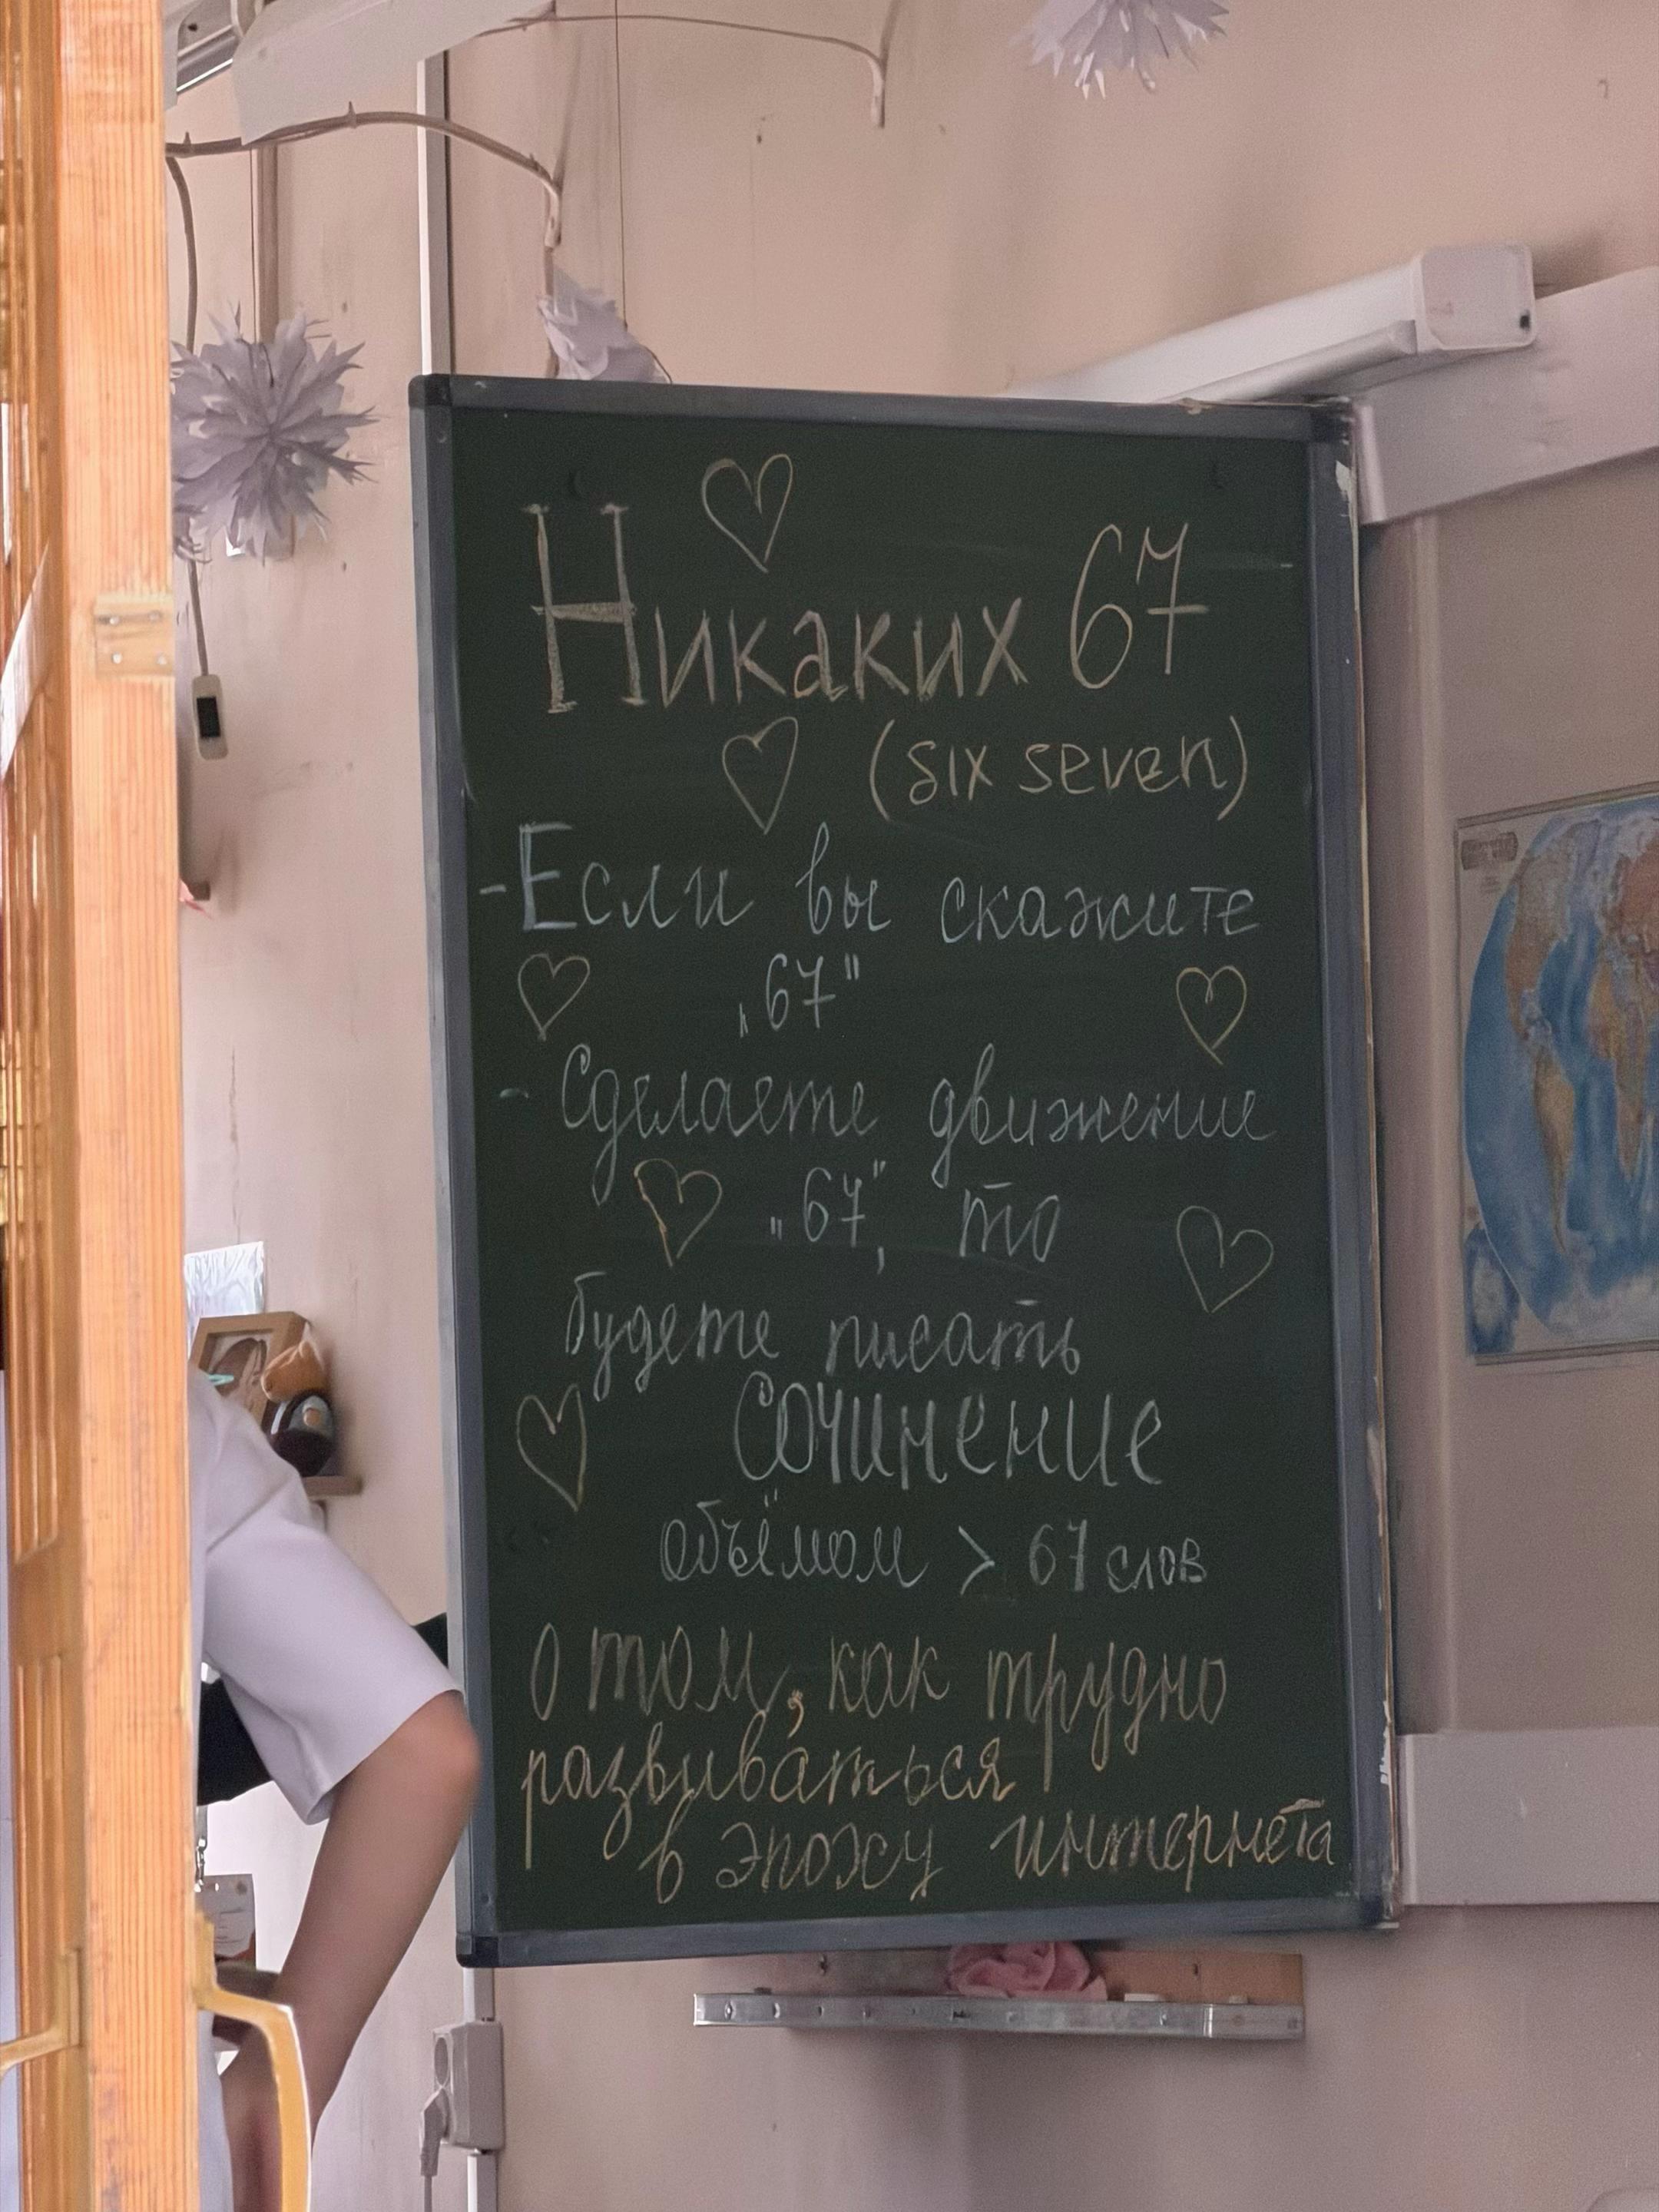 Никаких 67
(six seven)
- Если вы скажите
„67"
- Сделаете движение
„67", то
будете писать
Сочинение
объёмом > 67 слов
о том, как трудно
развиваться
в эпоху интернета